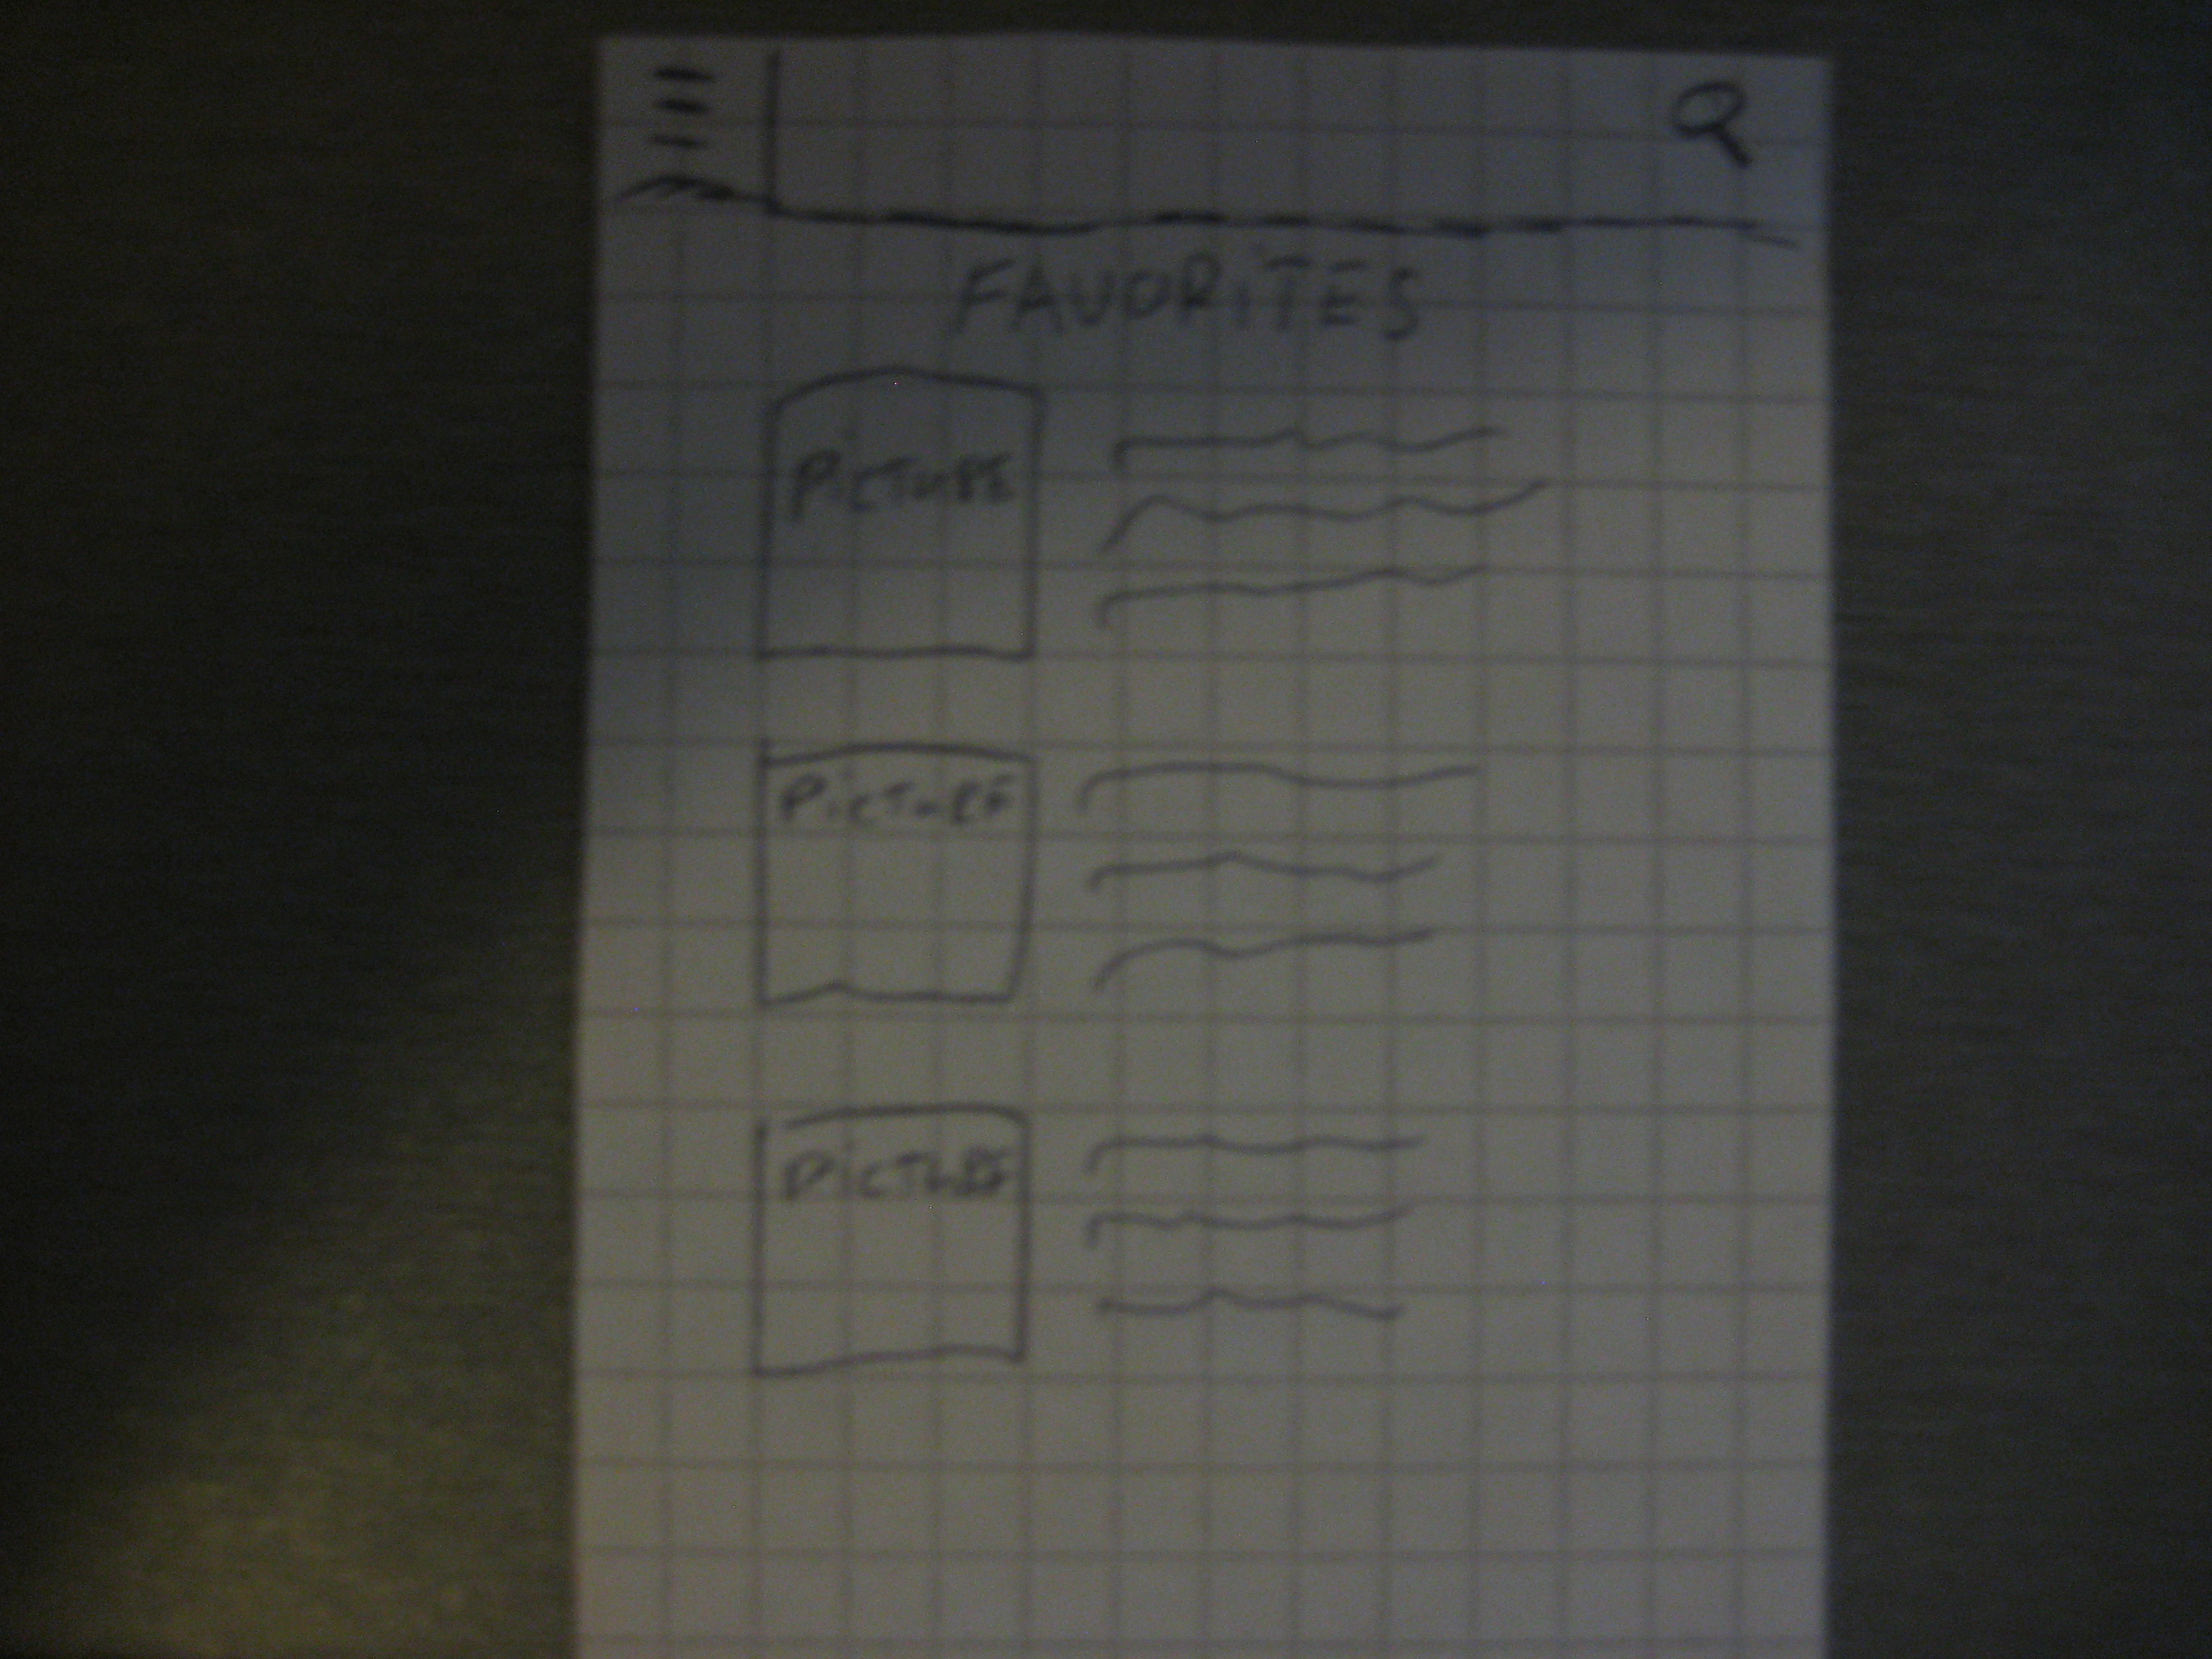 FAVORITES
PICTURE
PICTURE
PICTURE